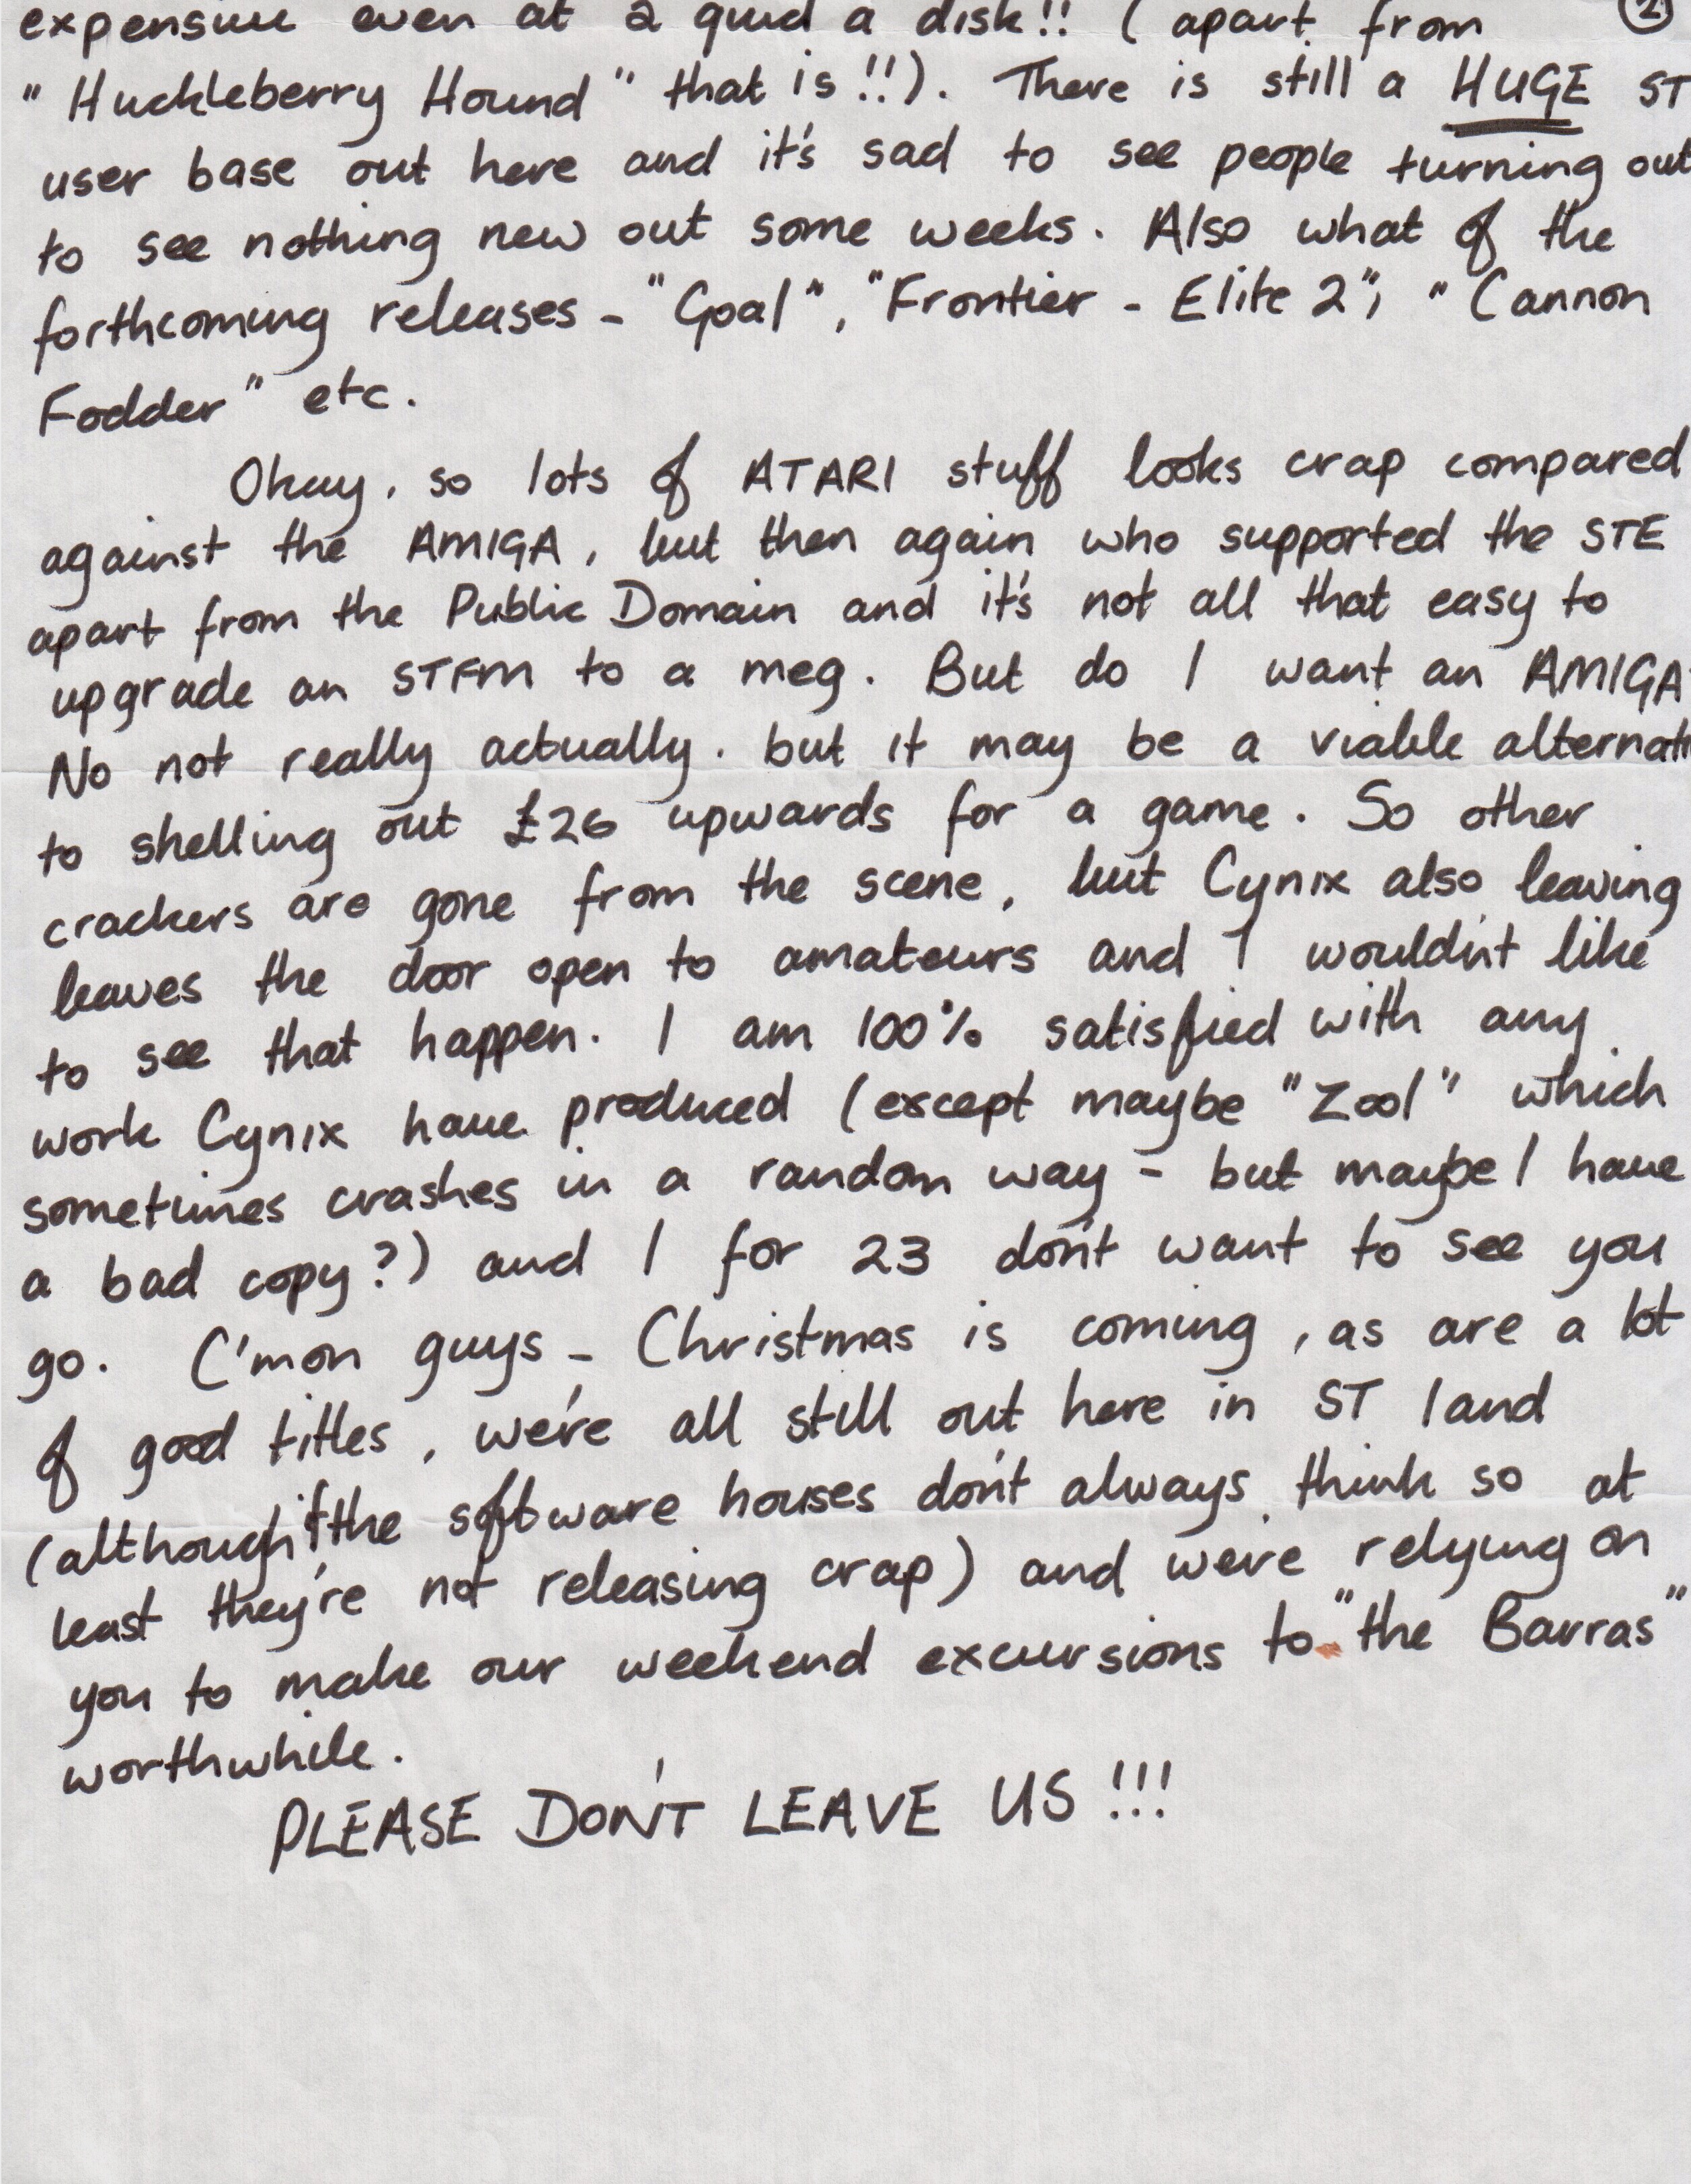 expensive even at 2 quid a disk!! (apart from ②
"Huckleberry Hound" that is!!). There is still a HUGE ST
user base out here and it's sad to see people turning out
to see nothing new out some weeks. Also what of the
forthcoming releases - "Goal", "Frontier - Elite 2", "Cannon
Fodder" etc.
Okay, so lots of ATARI stuff looks crap compared
against the AMIGA, but then again who supported the STE
apart from the Public Domain and it's not all that easy to
upgrade an STFM to a meg. But do I want an AMIGA
No not really actually. but it may be a viable alternati
to shelling out £26 upwards for a game. So other
crackers are gone from the scene, but Cynix also leaving
leaves the door open to amateurs and I wouldn't like
to see that happen. I am 100% satisfied with any
work Cynix have produced (except maybe "Zool" which
sometimes crashes in a random way - but maybe I have
a bad copy?) and I for 23 don't want to see you
go. C'mon guys - Christmas is coming, as are a lot
of good titles, we're all still out here in ST land
(although if the software houses don't always think so at
least they're not releasing crap) and we're relying on
you to make our weekend excursions to "the Barras"
worthwhile.
PLEASE DON'T LEAVE US!!!